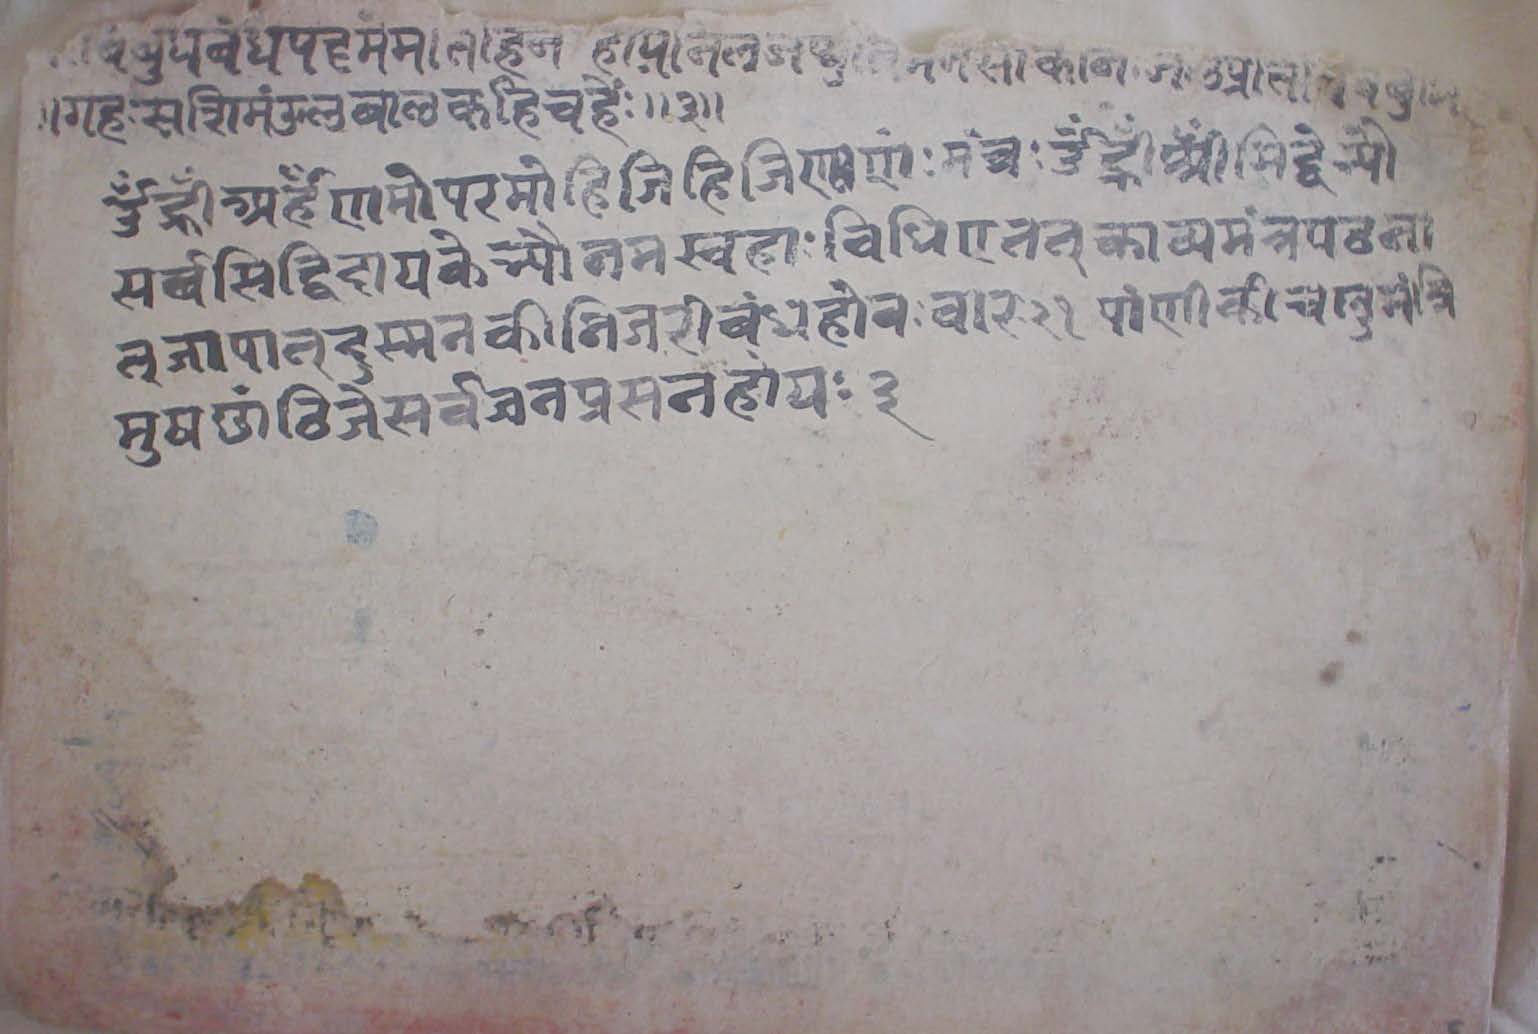 बुधवंधपदमैंमातिहीन होयनिलजथुतिमनसाकीन जलप्रतिबिंब
॥गहः ससिमंडलबालकहिचहैंः ॥३॥
ॐह्रीं अर्हँ णमो परमोहिजिहिजिणाणंः मंत्रः ॐ ह्रीं श्रीं सिद्धेभ्यो
सर्वसिद्धिदायकेभ्यो नमस्वहाः विधिएतत् काव्यमंत्रपठना
त्जापात्दुस्मनकीनिजरीबंधहोवः वार २१ पांणीकीचलुमंत्रि
मुषछांठिजेसर्वजनप्रसनहोयः ३